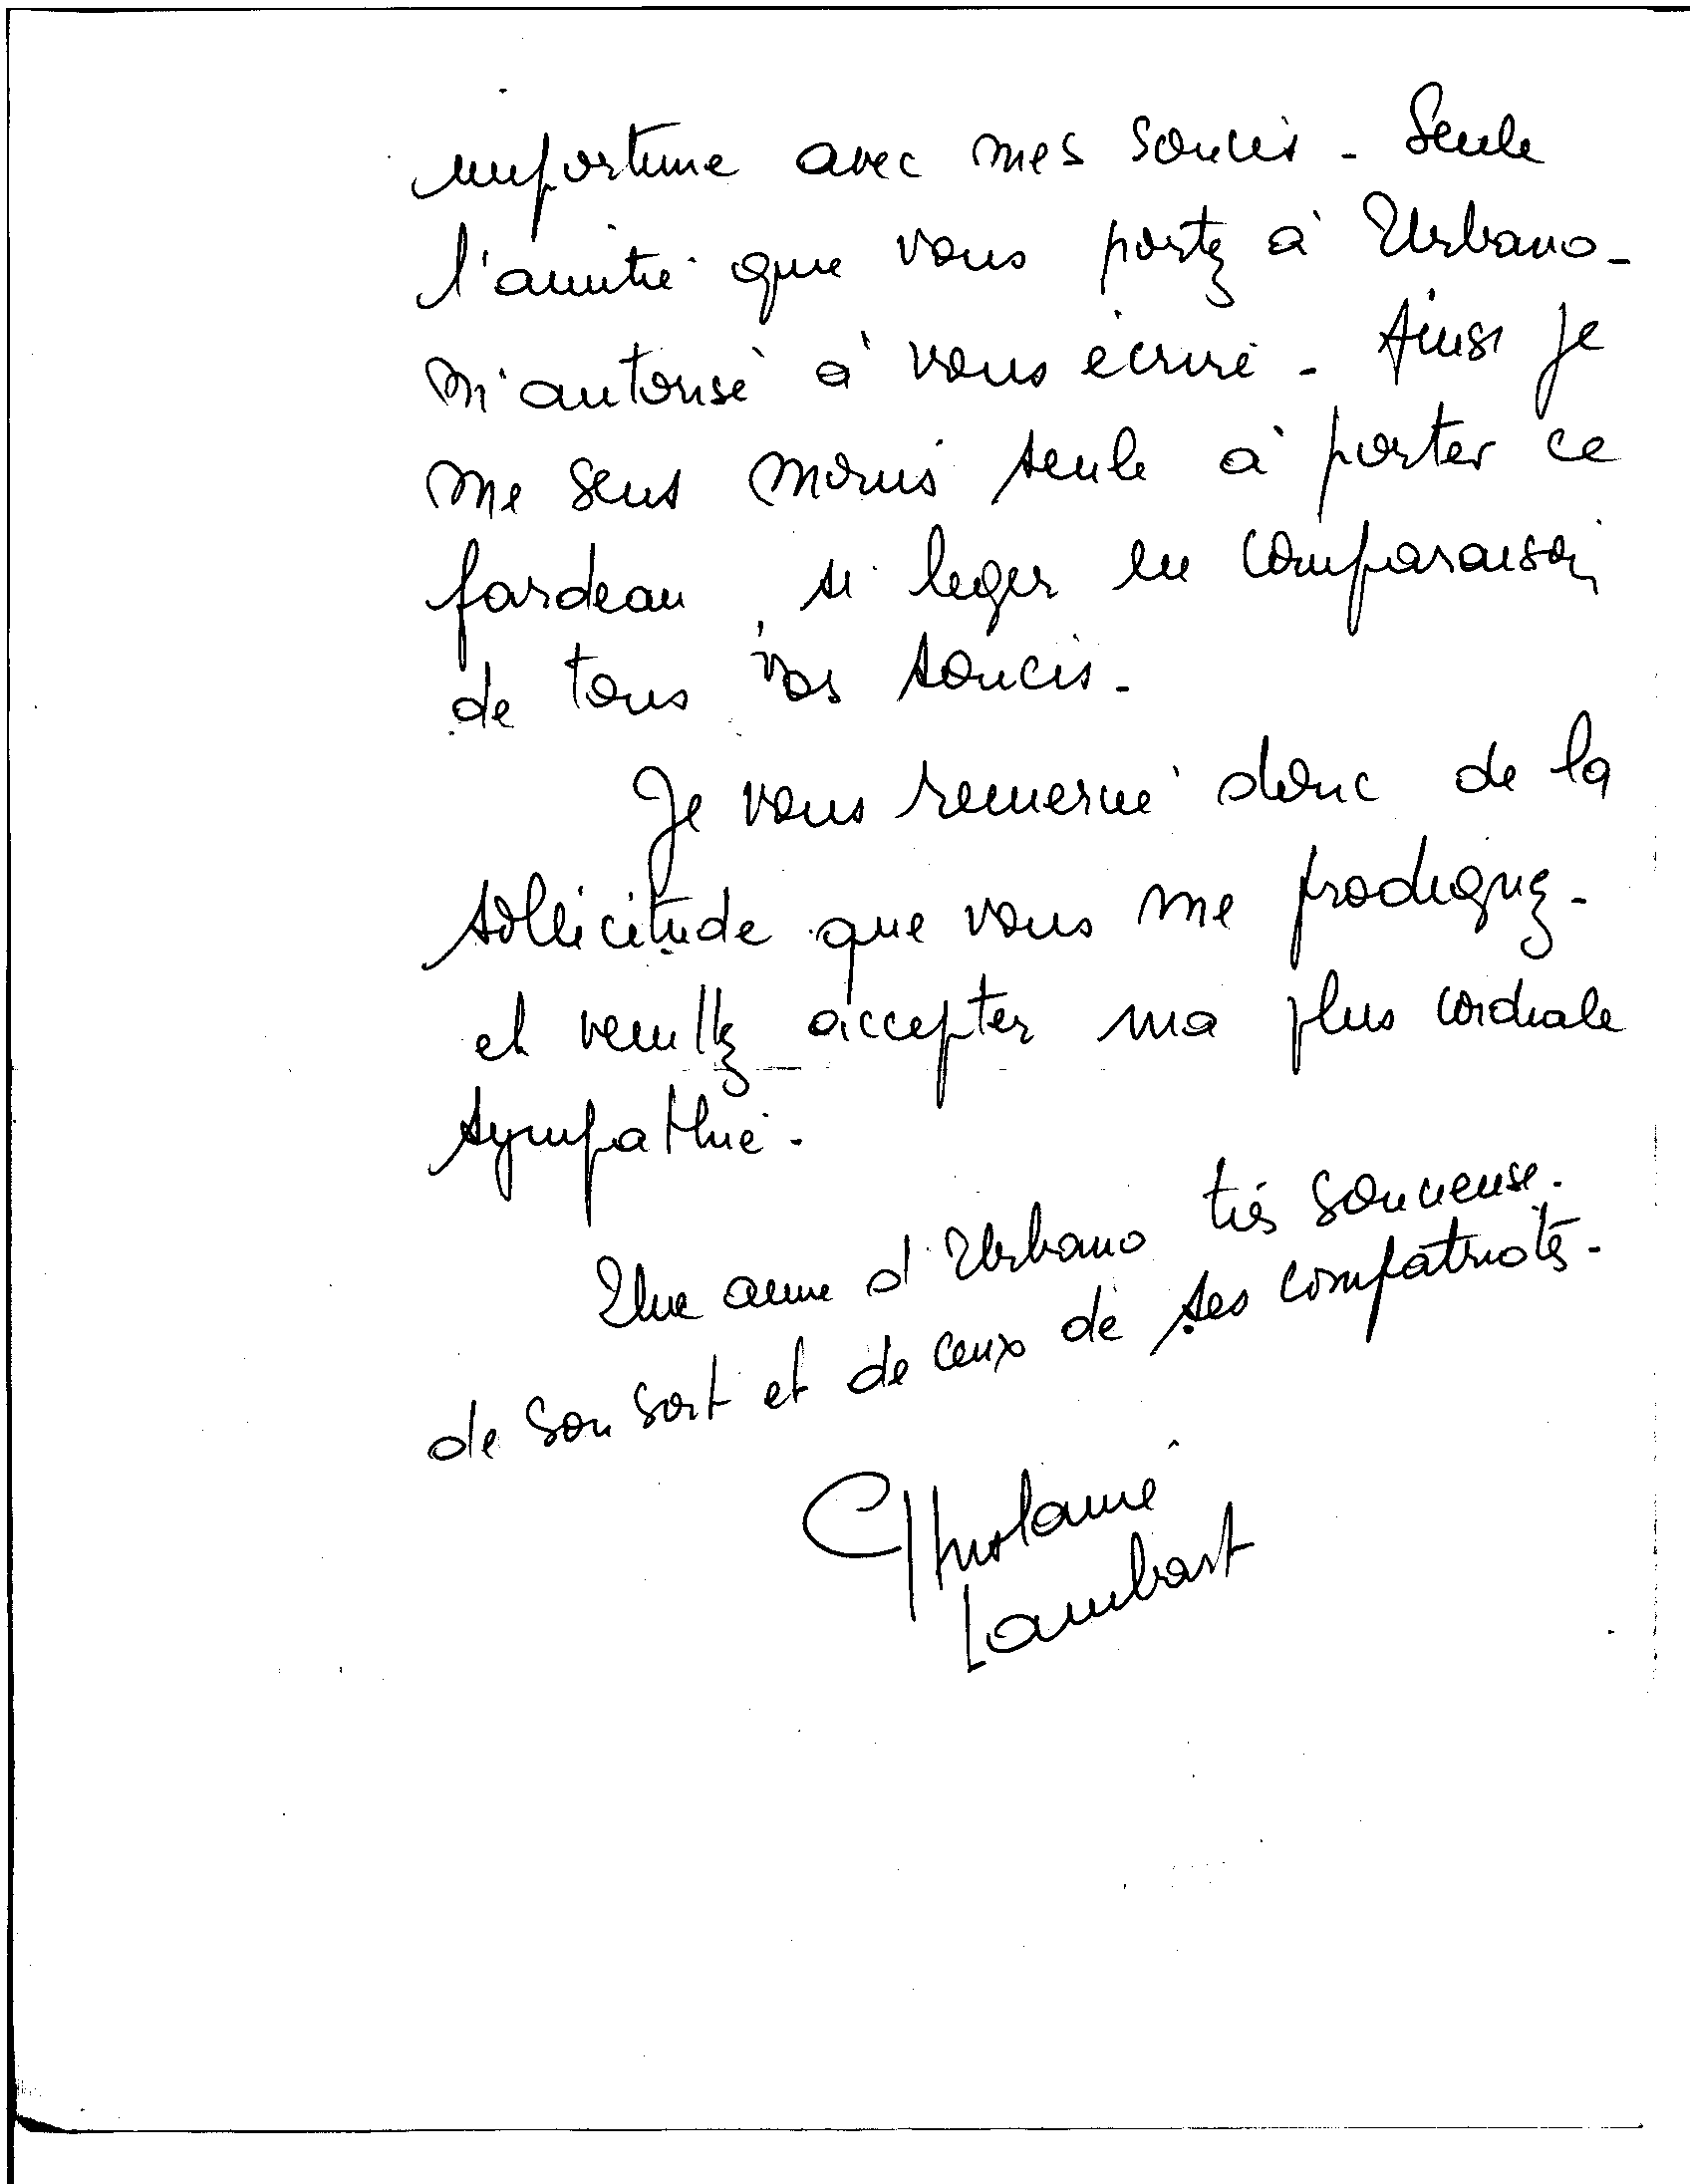 importune avec mes soucis - Seule
l'amitié que vous portez à Urbano -
m'autorise à vous écrire - Ainsi je
me sens moins seule à porter ce
fardeau, si léger en comparaison
de tous vos soucis -
Je vous remercie donc de la
sollicitude que vous me prodiguez -
et veuillez accepter ma plus cordiale
sympathie -
Une amie d'Urbano très soucieuse -
de son sort et de ceux de ses compatriotes -
Ghislaine
Lambart